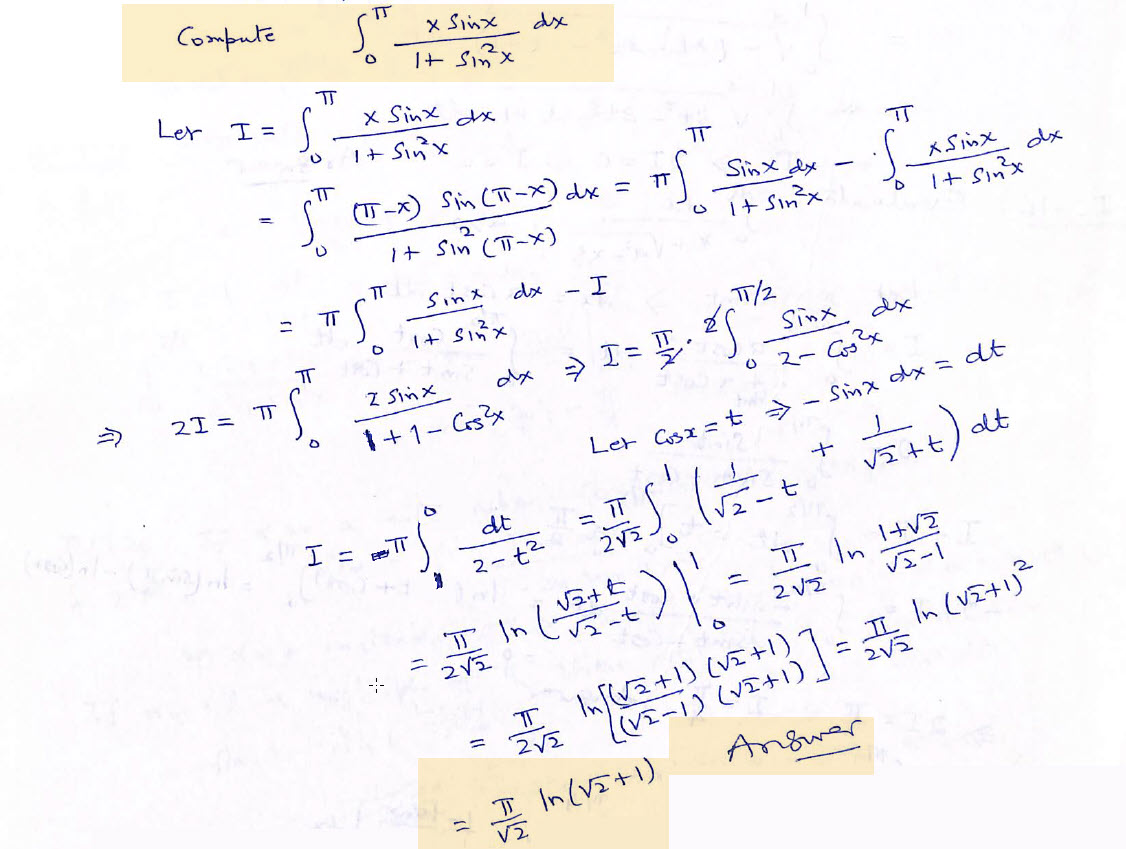 Compute ∫₀^π x Sinx / (1 + Sin²x) dx
Let I = ∫₀^π x Sinx / (1 + Sin²x) dx
= ∫₀^π (π-x) Sin(π-x) / (1 + Sin²(π-x)) dx = π ∫₀^π Sinx dx / (1 + Sin²x) - ∫₀^π x Sinx / (1 + Sin²x) dx
= π ∫₀^π Sinx / (1 + Sin²x) dx - I
⇒ 2I = π ∫₀^π 2 Sinx / (1 + 1 - Cos²x) dx ⇒ I = π/2 · 2 ∫₀^{π/2} Sinx / (2 - Cos²x) dx
Let Cosx = t ⇒ - Sinx dx = dt
I = -π ∫₁^0 dt / (2 - t²) = π/(2√2) ∫₀^1 (1/(√2 - t) + 1/(√2 + t)) dt
= π/(2√2) ln((√2 + t)/(√2 - t)) |₀^1 = π/(2√2) ln (1+√2)/(√2-1)
= π/(2√2) ln[(√2+1)(√2+1) / (√2-1)(√2+1)] = π/(2√2) ln(√2+1)²
= π/√2 ln(√2+1) Answer